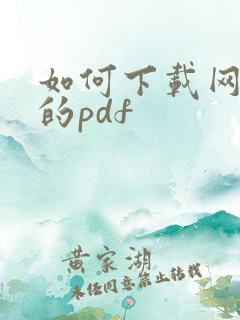 如何下载网
的pdf
黄家湖
未经同意禁止转载